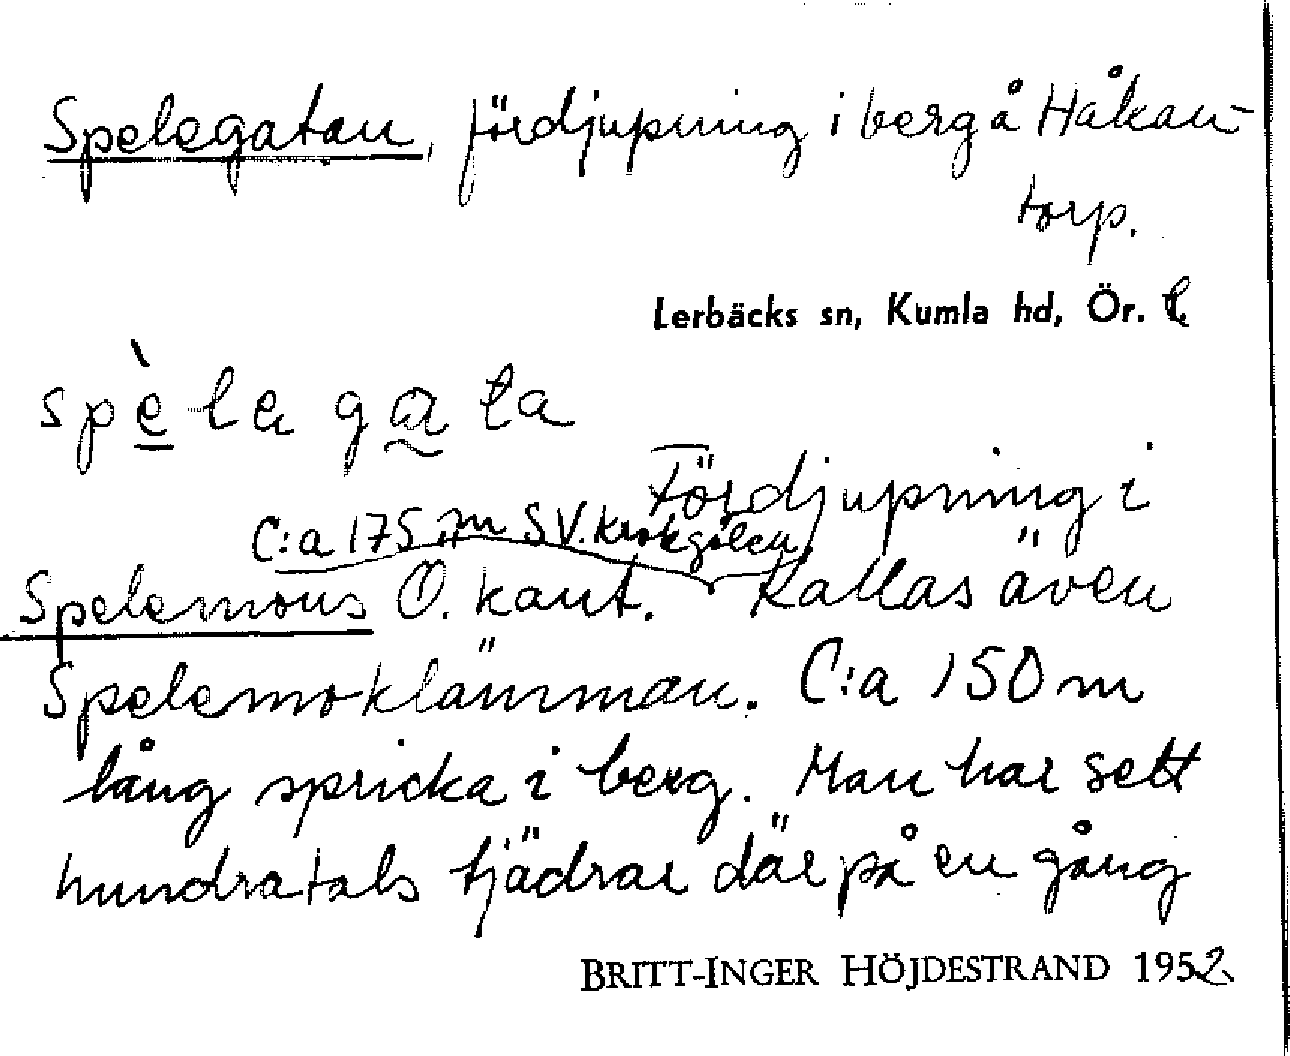 Spelegatan, fördjupning i berg å Håkan-
torp.
Lerbäcks sn, Kumla hd, Ör. l.
spè̱le ga̰ta
Fördjupning i
C:a 175 m SV. Krokgölen
Spelemons Ö. kant. Kallas även
Spelemoklämman. C:a 150 m
lång spricka i berg. Man har sett
hundratals tjädrar där på en gång
BRITT-INGER HÖJDESTRAND 1952